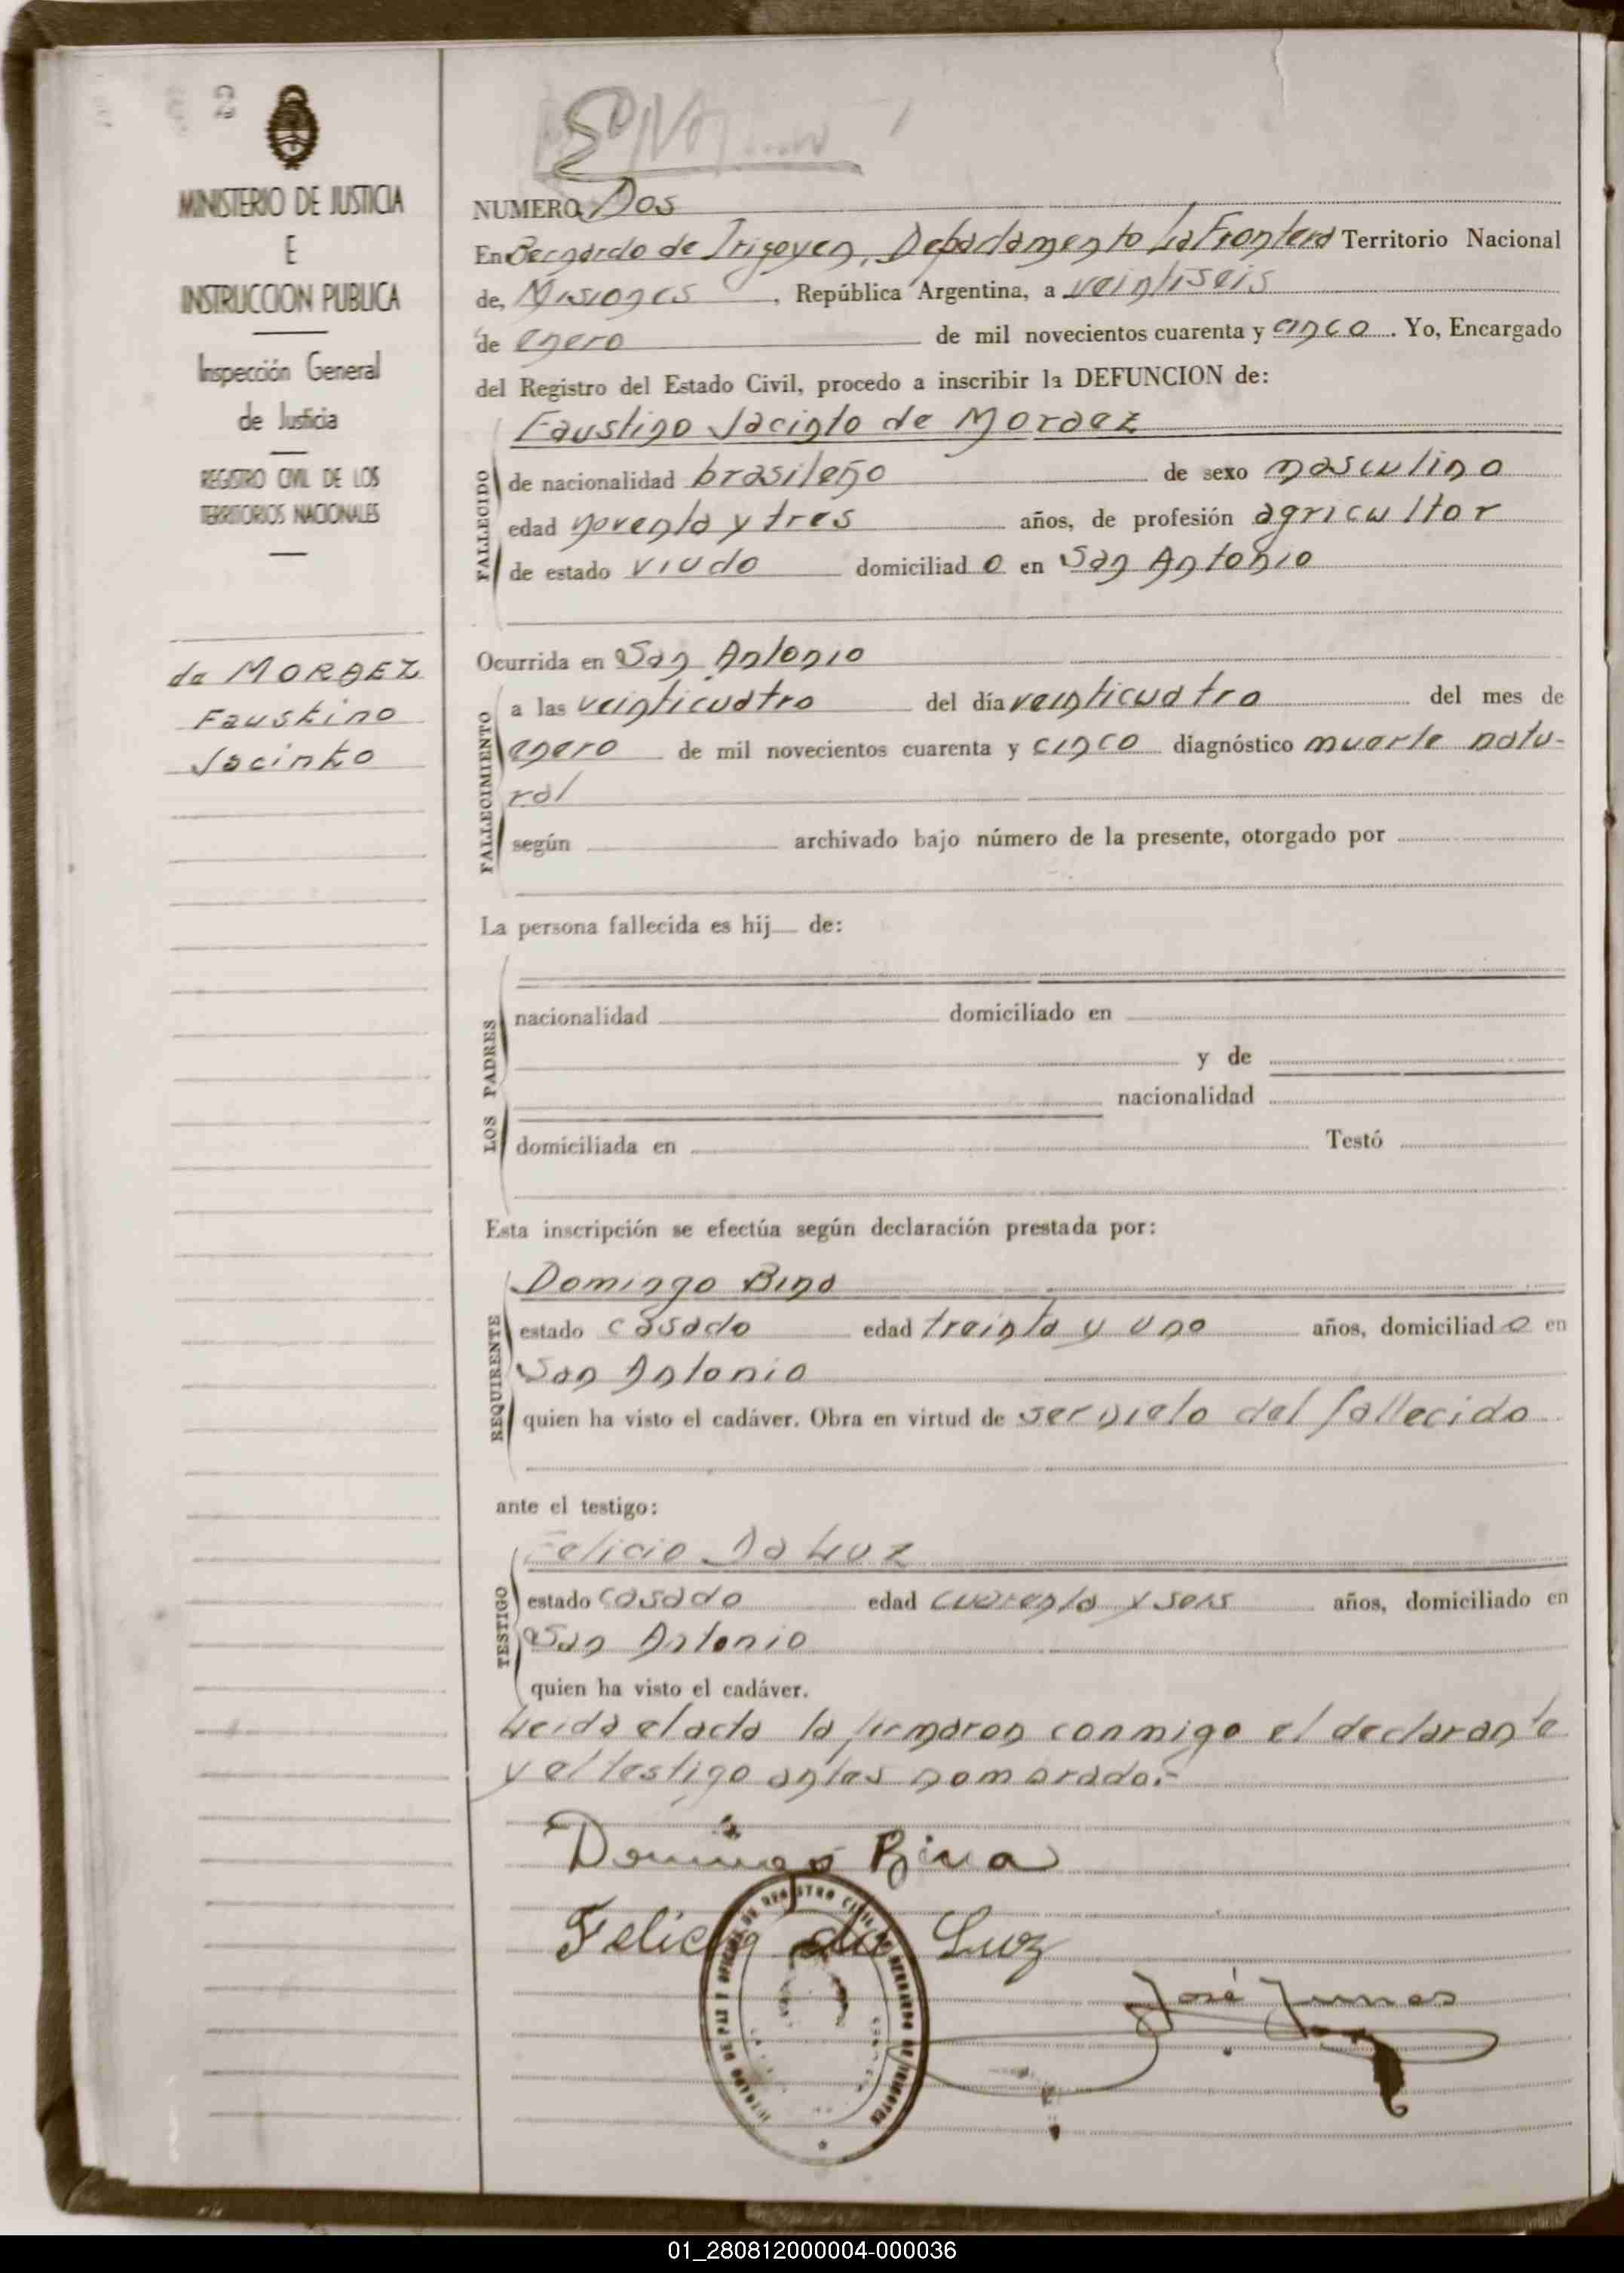 2
MINISTERIO DE JUSTICIA
E
INSTRUCCION PUBLICA
Inspección General
de Justicia
REGISTRO CIVIL DE LOS
TERRITORIOS NACIONALES
da MORAEZ
Faustino
Jacinto
NUMERO Dos
En Bernardo de Irigoyen, Departamento La Frontera Territorio Nacional
de, Misiones, República Argentina, a veintiseis
de enero de mil novecientos cuarenta y cinco. Yo, Encargado
del Registro del Estado Civil, procedo a inscribir la DEFUNCION de:
Faustino Jacinto de Moraez
FALLECIDO
de nacionalidad brasileño de sexo masculino
edad noventa y tres años, de profesión agricultor
de estado viudo domiciliad o en San Antonio
Ocurrida en San Antonio
FALLECIMIENTO
a las veinticuatro del día veinticuatro del mes de
enero de mil novecientos cuarenta y cinco diagnóstico muerte natu-
ral
según archivado bajo número de la presente, otorgado por
La persona fallecida es hij de:
LOS PADRES
nacionalidad domiciliado en
y de
nacionalidad
domiciliada en Testó
Esta inscripción se efectúa según declaración prestada por:
Domingo Bino
REQUIRENTE
estado casado edad treinta y uno años, domiciliad o en
San Antonio
quien ha visto el cadáver. Obra en virtud de ser nieto del fallecido
ante el testigo:
Felicio Da Luz
TESTIGO
estado casado edad cuarenta y seis años, domiciliado en
San Antonio
quien ha visto el cadáver.
Leida el acta la firmaron conmigo el declarante
y el testigo antes nombrado.-
Domingo
Felicio da Luz
José
01_280812000004-000036